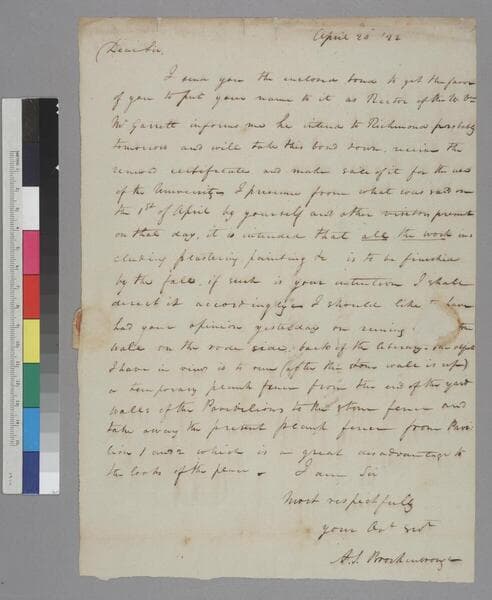 April 20 '22
Dear Sir,
I send you the enclosed bond to get the favor
of you to put your name to it as Rector of the U. Va
Mr Garrett informs me he intends to Richmond possibly
tomorrow and will take this bond down, receive the
certificate and make sale of it for the use
of the University I presume from what was said on
the 1st of April by yourself and other visitors present
on that day, it is intended that all the work in-
cluding plastering painting &c is to be finished
by the fall, if such is your intention I shall
direct it accordingly I should like to have
had your opinion yesterday on runing the
wall on the road side, back of the library. object
I have in view is to run (after the stone wall is up)
a temporary plank fence from the end of the yard
walls of the Pavilions to the stone fence and
take away the present plank fence from Pavi-
lion 1 and 2 which is a great disadvantage to
the looks of the place. I am Sir
Most respectfully
your Obt Svt
A. S. Brockenbrough